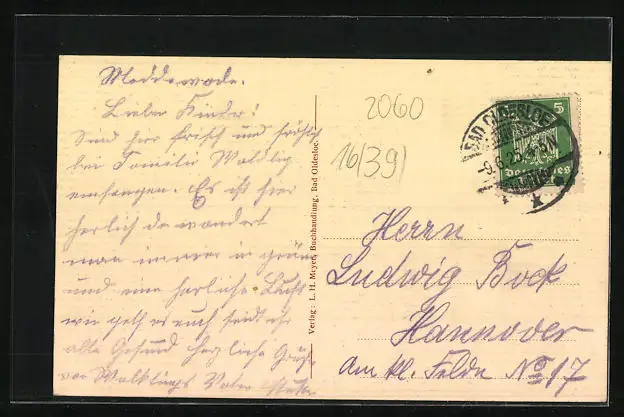 Meddewade.
Lieben Kinder!
Sind hier frisch und fröhlich
bei Familie
empfangen. Es ist hier
herlich da wandert
man immer in grün
und eine herliche Luft
wie geht es euch seidt ihr
alle Gesund herzliche Grüße
von Vater
Verlag: L. H. Meyer, Buchhandlung, Bad Oldesloe.
2060
16/39
5
BAD OLDESLOE
Deutsches
Herrn
Ludwig Bock
Hannover
Am kl. Felde No 17